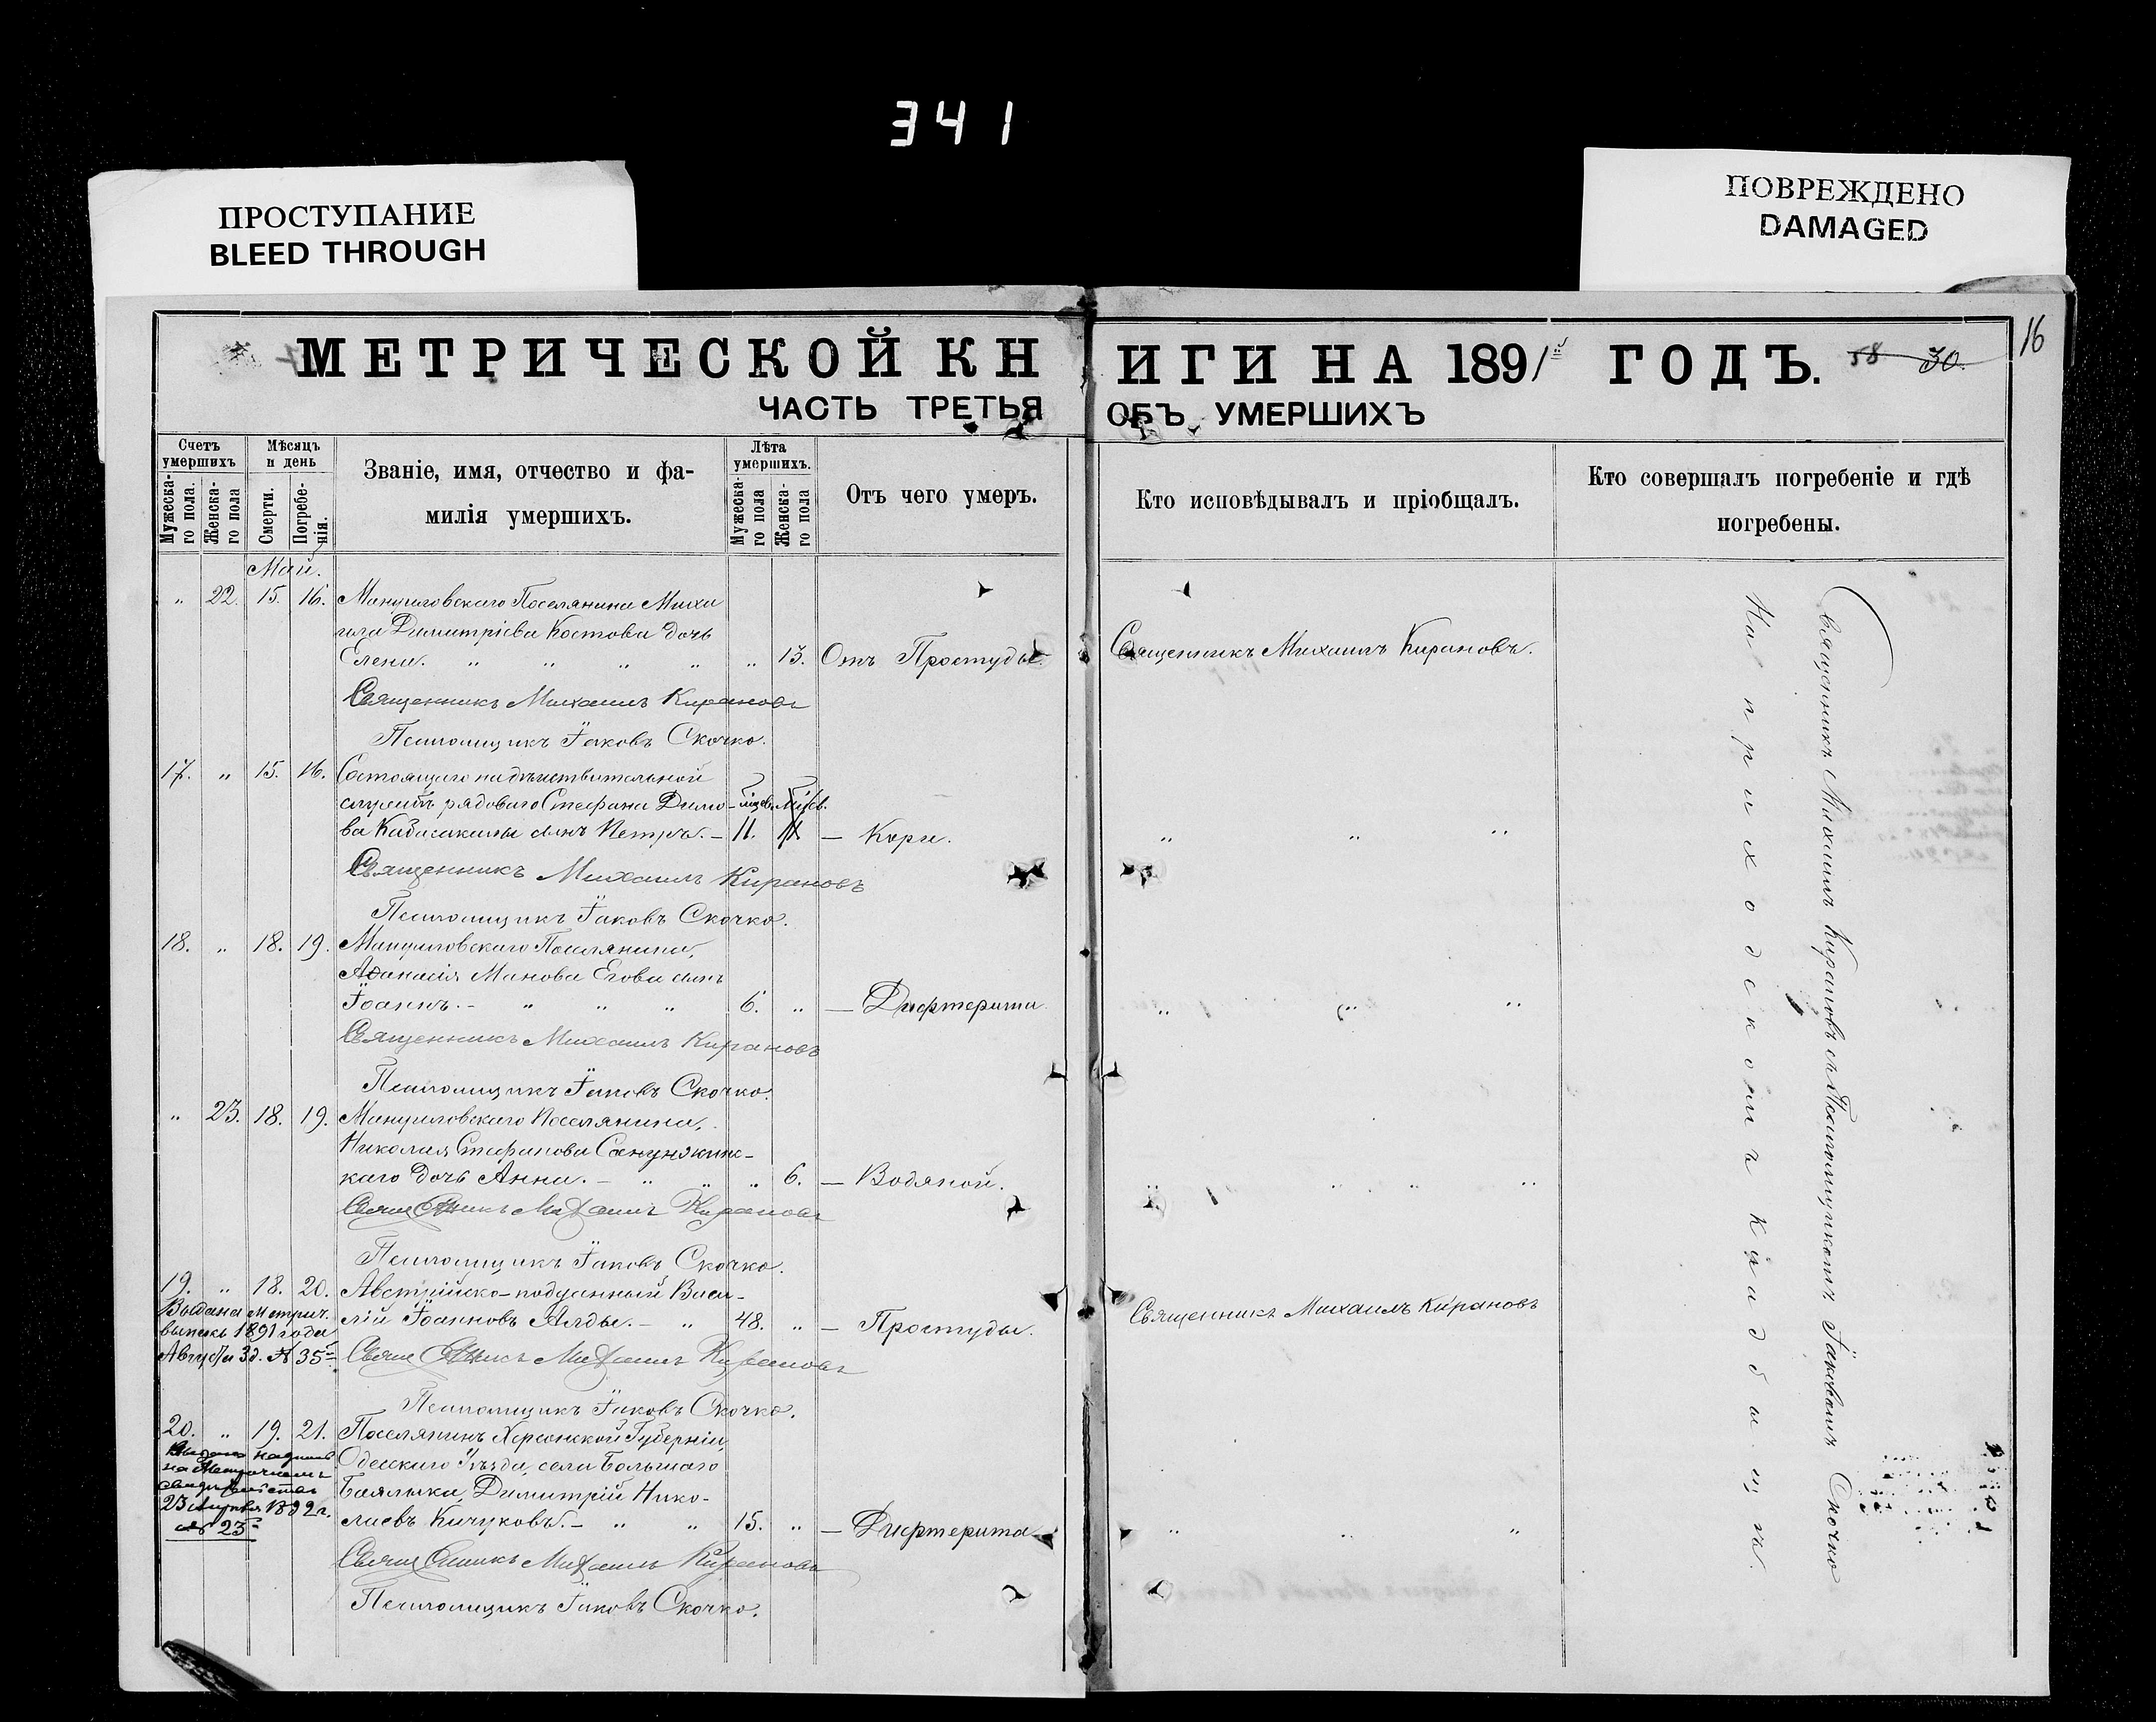 341
ПРОСТУПАНИЕ
BLEED THROUGH
ПОВРЕЖДЕНО
DAMAGED
16
МЕТРИЧЕСКОЙ КН ИГИ НА 1891й ГОДЪ. 58 30.
ЧАСТЬ ТРЕТЬЯ ОБЪ УМЕРШИХЪ
Счетъ умершихъ
Мужеска-го пола.
Женска-го пола
Мѣсяцъ и день
Смерти.
Погребе-нія.
Званіе, имя, отчество и фа-
милія умершихъ.
Лѣта умершихъ.
Мужеска-го пола
Женска-го пола
Отъ чего умеръ.
Кто исповѣдывалъ и пріобщалъ.
Кто совершалъ погребеніе и гдѣ
погребены.
Май.
" 22. 15. 16. Мануиловскаго Поселянина Миха
ила Димитріева Костова дочь
Елена. " " " " " 13. Отъ Простуды. Священникъ Михаилъ Кирановъ.
Священникъ Михаилъ Кирановъ
Псаломщикъ Іаковъ Скочко.
17. " 15. 16. Состоящаго на дѣйствительной
службѣ рядового Стефана Димо-
ва Кабасакалы сынъ Петръ. – 11. – Кори. " " "
Священникъ Михаилъ Кирановъ
Псаломщикъ Іаковъ Скочко.
18. " 18. 19. Мануиловскаго Поселянина,
Аѳанасія Манова Егова сынъ
Іоаннъ. – " " " 6. " – Дифтерита. " " "
Священникъ Михаилъ Кирановъ
Псаломщикъ Іаковъ Скочко.
" 23. 18. 19. Мануиловскаго Поселянина,
Николая Стефанова
каго дочь Анна. – " " " 6. – Водяной. " " " "
Священникъ Михаилъ Кирановъ
Псаломщикъ Іаковъ Скочко.
19. " 18. 20. Австрійско-подданный Васи-
лій Іоанновъ Алды. – " 48. " – Простуды. Священникъ Михаилъ Кирановъ
Выдана Метрич.
выпись 1891 года
Августа 3 д. № 35
Священникъ Михаилъ Кирановъ
Псаломщикъ Іаковъ Скочко.
20. " 19. 21. Поселянинъ Херсонской Губерніи,
Одесскаго Уѣзда, села Большаго
Баялыка, Димитрій Нико-
лаевъ Кичуковъ. – " " 15. " – Дифтерита " " "
на Метрическомъ
23 1892 г.
№ 23
Священникъ Михаилъ Кирановъ
Псаломщикъ Іаковъ Скочко.
Священникъ Михаилъ Кирановъ съ Псаломщикомъ Іаковомъ Скочко
На приходскомъ кладбищѣ.